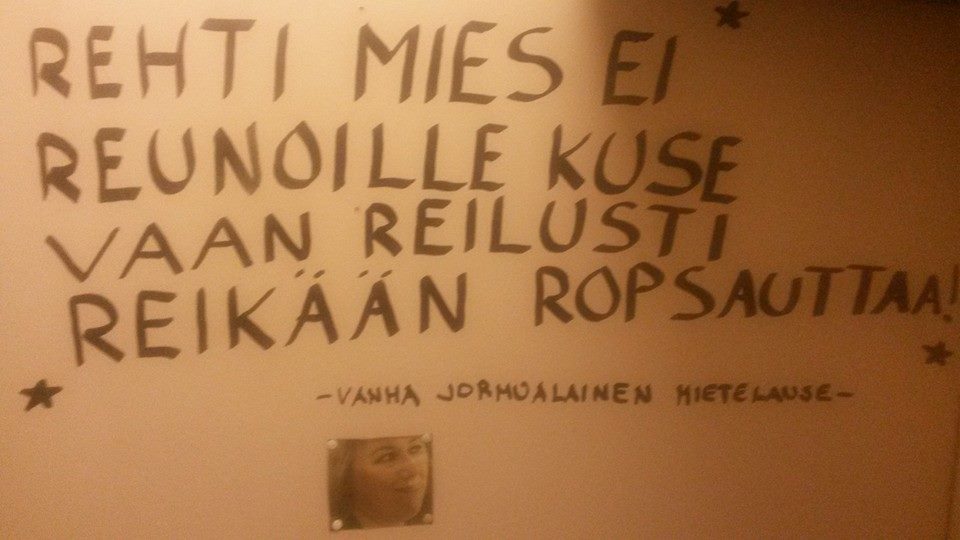 REHTI MIES EI
REUNOILLE KUSE
VAAN REILUSTI
REIKÄÄN ROPSAUTTAA!
-VANHA JORMUALAINEN MIETELAUSE-